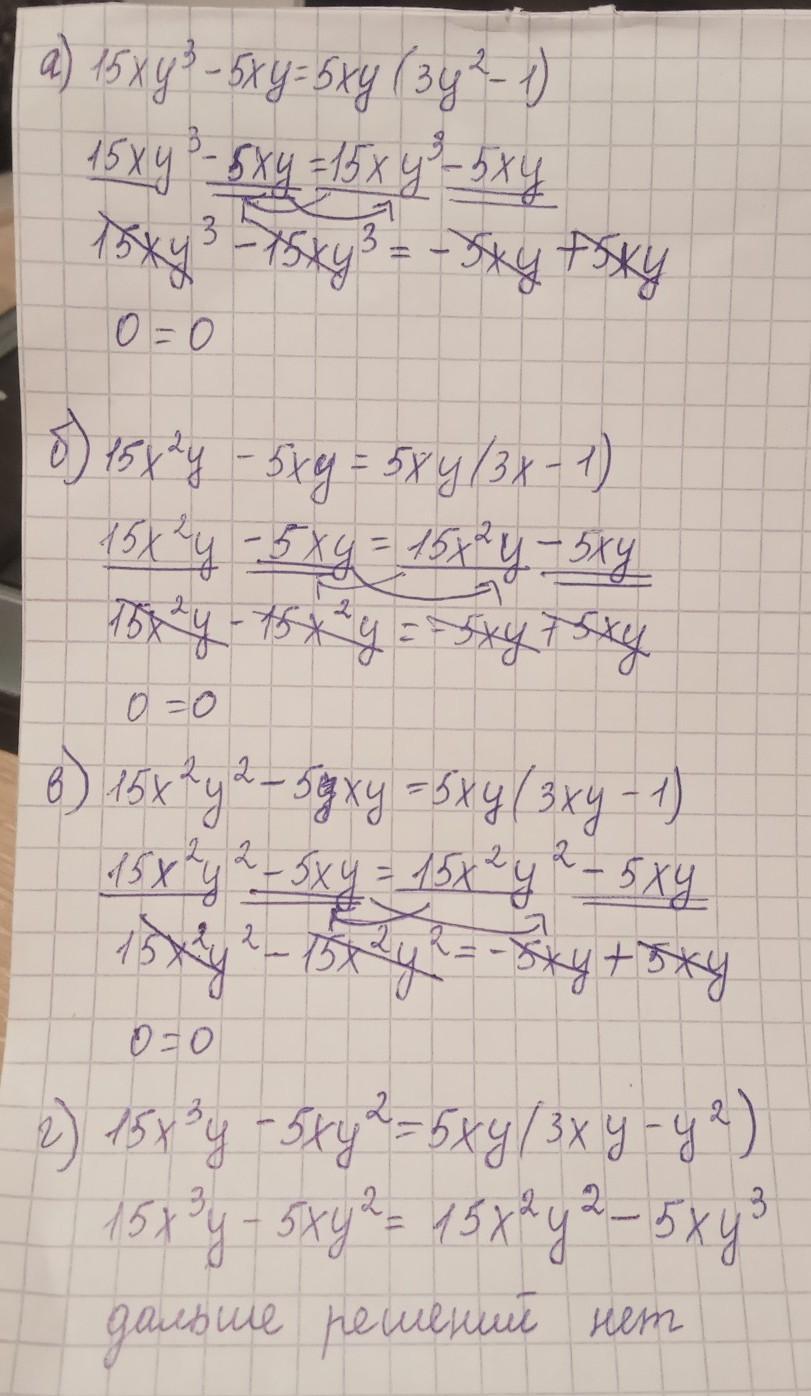 а) 15xy³ - 5xy = 5xy (3y² - 1)
15xy³ - 5xy = 15xy³ - 5xy
15xy³ - 15xy³ = - 5xy + 5xy
0 = 0
б) 15x²y - 5xy = 5xy (3x - 1)
15x²y - 5xy = 15x²y - 5xy
15x²y - 15x²y = - 5xy + 5xy
0 = 0
в) 15x²y² - 5xy = 5xy (3xy - 1)
15x²y² - 5xy = 15x²y² - 5xy
15x²y² - 15x²y² = - 5xy + 5xy
0 = 0
г) 15x³y - 5xy² = 5xy (3xy - y²)
15x³y - 5xy² = 15x²y² - 5xy³
дальше решений нет